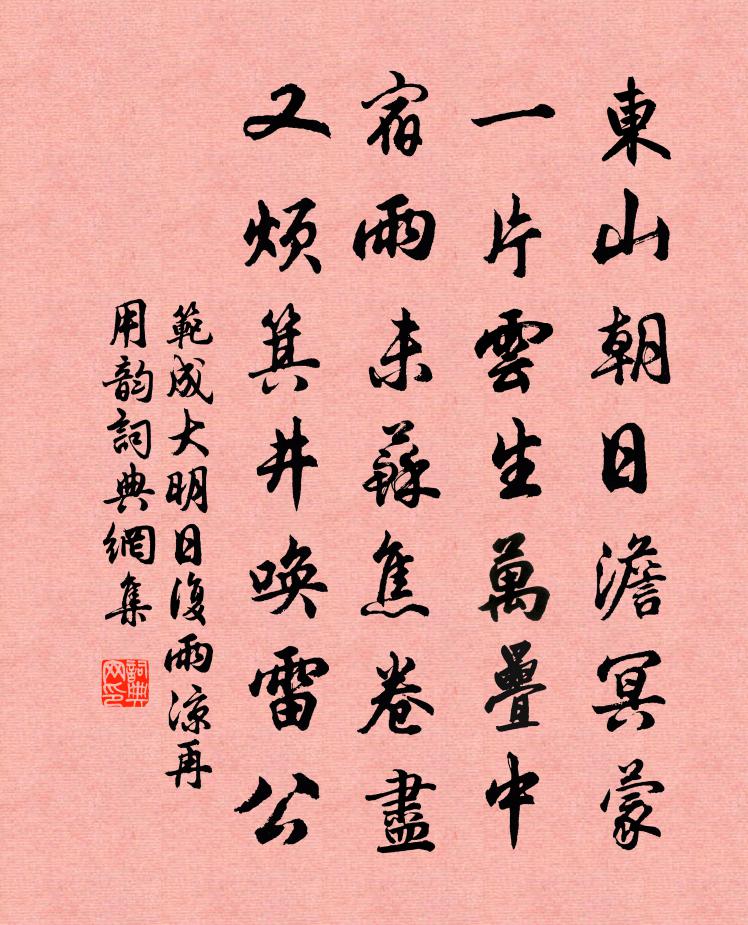 東山朝日澹冥蒙
一片雲生萬疊中
宿雨未蘇焦卷盡
又煩箕井喚雷公
範成大明日復雨凉再
用韵詞典網集
詞典网印